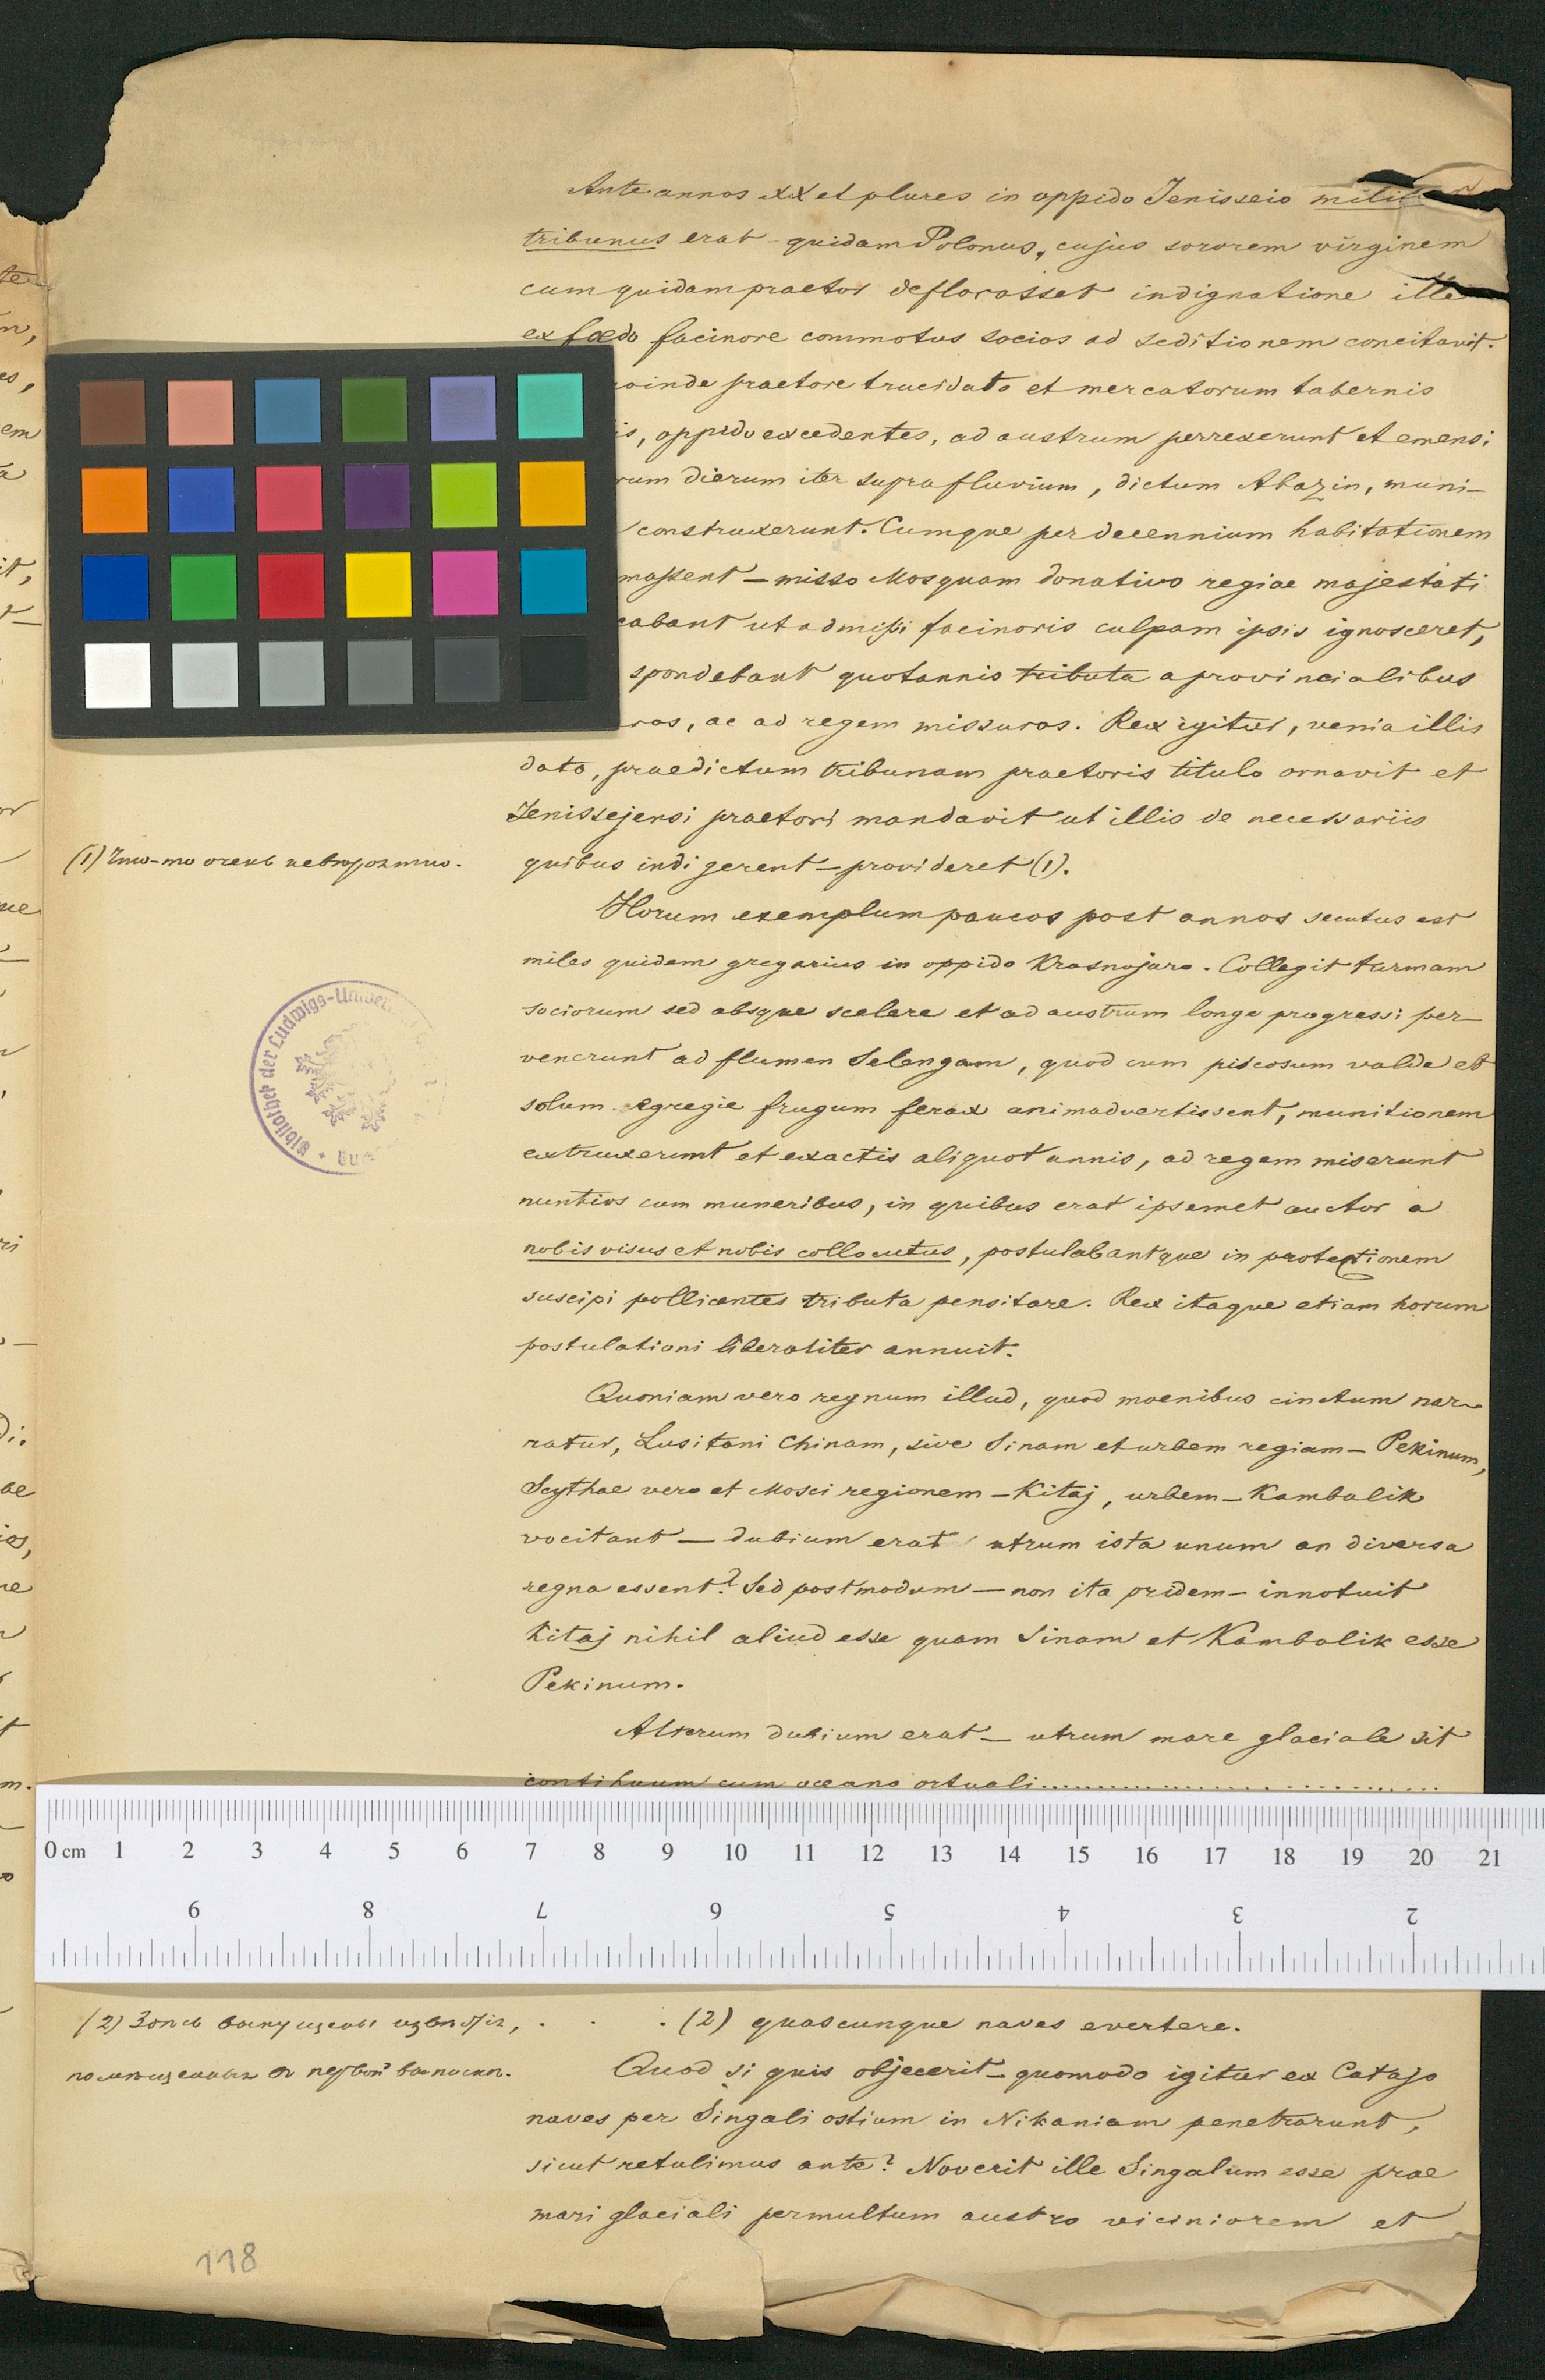 Ante annos XX et plures in oppido Jenisseio
tribunus erat quidam Polonus, cujus sororem virginem
cum quidam praetor deflorasset indignatione ille
ex foedo facinore commotus socios ad seditionem concitavit.
oinde praetore trucidato et mercatorum tabernis
is, oppido excedentes, ad austrum perrexerunt et emensi
rum dierum iter supra fluvium, dictum Abazin, muni-
construxerunt. Cumque per decennium habitationem
massent – misso Mosquam donativo regiae majestati
cabant ut admissi facinoris culpam ipsis ignosceret,
spondebant quotannis tributa a provincialibus
ros, ac ad regem missuros. Rex igitur, venia illis
data, praedictum tribunum praetoris titulo ornavit et
Jenissejensi praetori mandavit ut illis de necessariis
(1) Что-то очень невѣроятно.
quibus indigerent – provideret (1).
Horum exemplum paucos post annos secutus est
miles quidam gregarius in oppido Krasnojaro. Collegit turmam
sociorum sed absque scelere et ad austrum longe progressi per-
venerunt ad flumen Selengam, quod cum piscosum valde et
solum egregie frugum ferax animadvertissent, munitionem
extruxerunt et exactis aliquot annis, ad regem miserunt
nuntios cum muneribus, in quibus erat ipsemet auctor a
nobis visus et nobis collocutus, postulabantque in protectionem
suscipi pollicentes tributa pensitare. Rex itaque etiam horum
postulationi liberaliter annuit.
Quoniam vero regnum illud, quod moenibus cinctum nar-
ratur, Lusitani Chinam, sive Sinam et urbem regiam – Pekinum,
Scythae vero et Mosci regionem – Kitaj, urbem – Kambalik
vocitant – dubium erat utrum ista unum an diversa
regna essent? Sed postmodum – non ita pridem – innotuit
Kitaj nihil aliud esse quam Sinam et Kambalik esse
Pekinum.
Alterum dubium erat – utrum mare glaciale sit
continuum cum oceano ortuali..............................
(2) Здѣсь выпущены извѣстія,
помѣщенныя въ первой выписки.
. . . (2) quascunque naves evertere.
Quod si quis objecerit – quomodo igitur ex Catajo
naves per Singali ostium in Nikaniam penetrarunt,
sicut retulimus ante? Noverit ille Singalum esse prae
mari glaciali permultum austro viciniorem et
118
Bibliothek der Ludwigs-Univer
0 cm 1 2 3 4 5 6 7 8 9 10 11 12 13 14 15 16 17 18 19 20 21
9 8 7 6 5 4 3 2